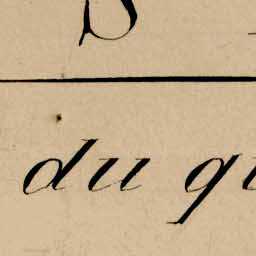 S
du qu